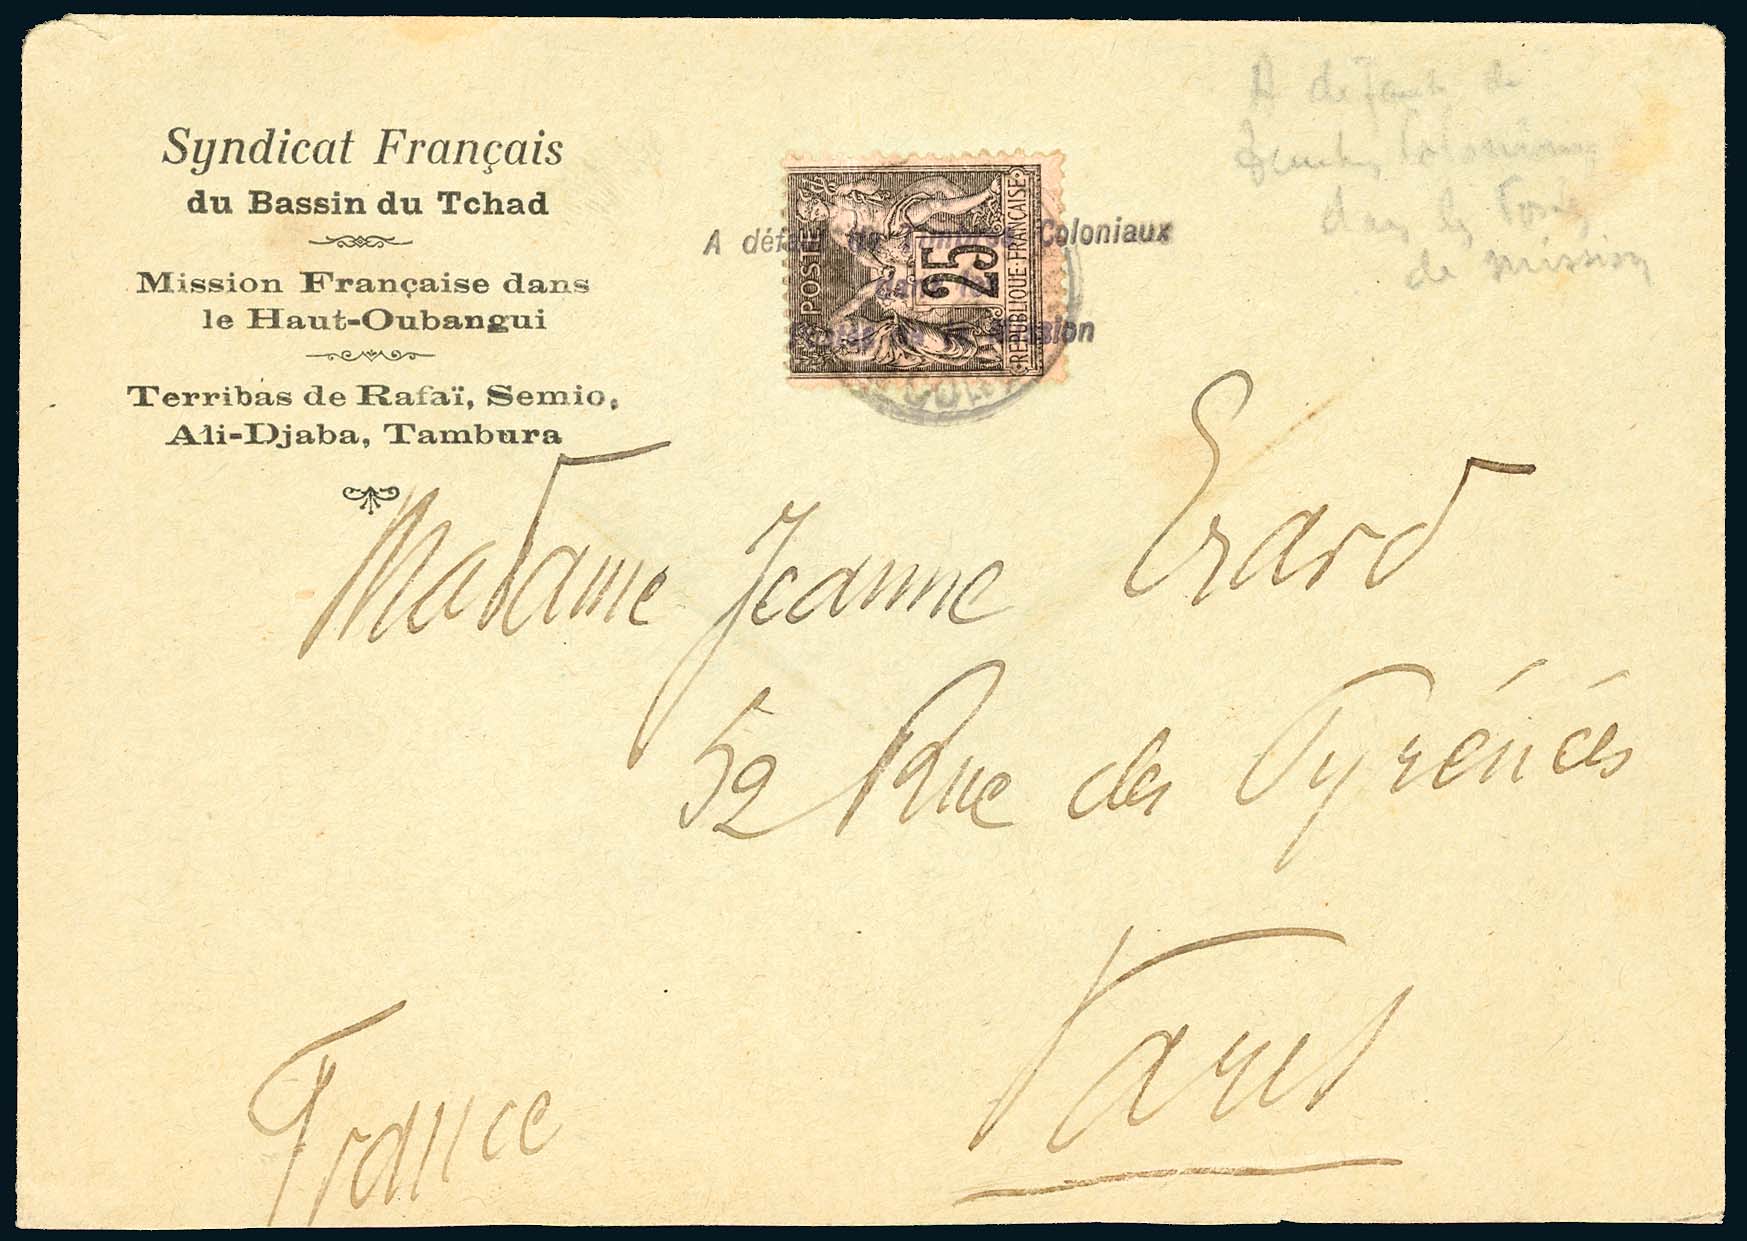 Syndicat Français
du Bassin du Tchad
Mission Française dans
le Haut-Oubangui
Terribas de Rafaï, Semio,
Ali-Djaba, Tambura
A défaut de
Coloniaux
dans les
de mission
A défaut de Timbres Coloniaux
dans les
Postes de la Mission
POSTE
25
REPUBLIQUE FRANÇAISE
Madame Jeanne Erard
52 Rue des Pyrénées
Paris
France